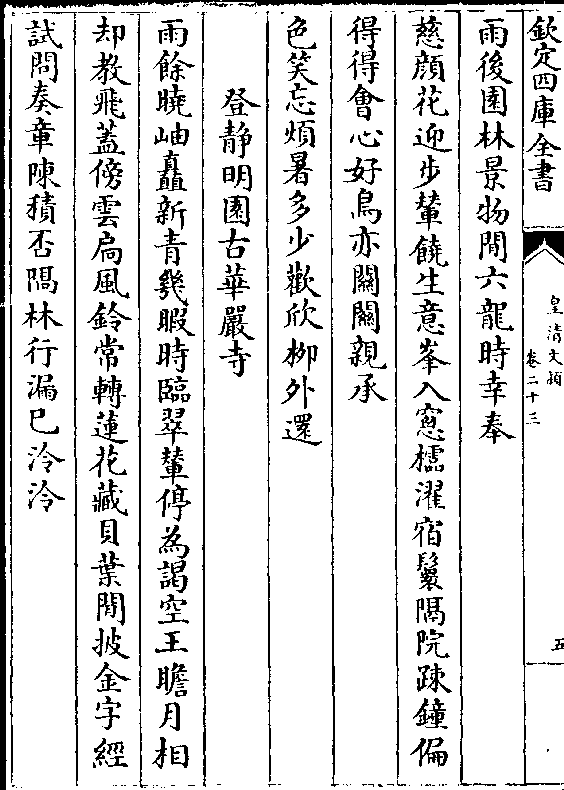 欽定四庫全書
皇清文穎
卷二十三
五
雨後園林景物閒六龍時幸奉
慈顔花迎步輦饒生意峯入窓櫺濯宿鬟隔院踈鐘偏
得得會心好鳥亦關關親承
色笑忘煩暑多少歡欣栁外還
登静明園古華嚴寺
雨餘曉岫矗新青幾暇時臨翠輦停為謁空王瞻月相
却教飛蓋傍雲扃風鈴常轉蓮花藏貝葉閒披金字經
試問奏章陳積否隔林行漏已泠泠